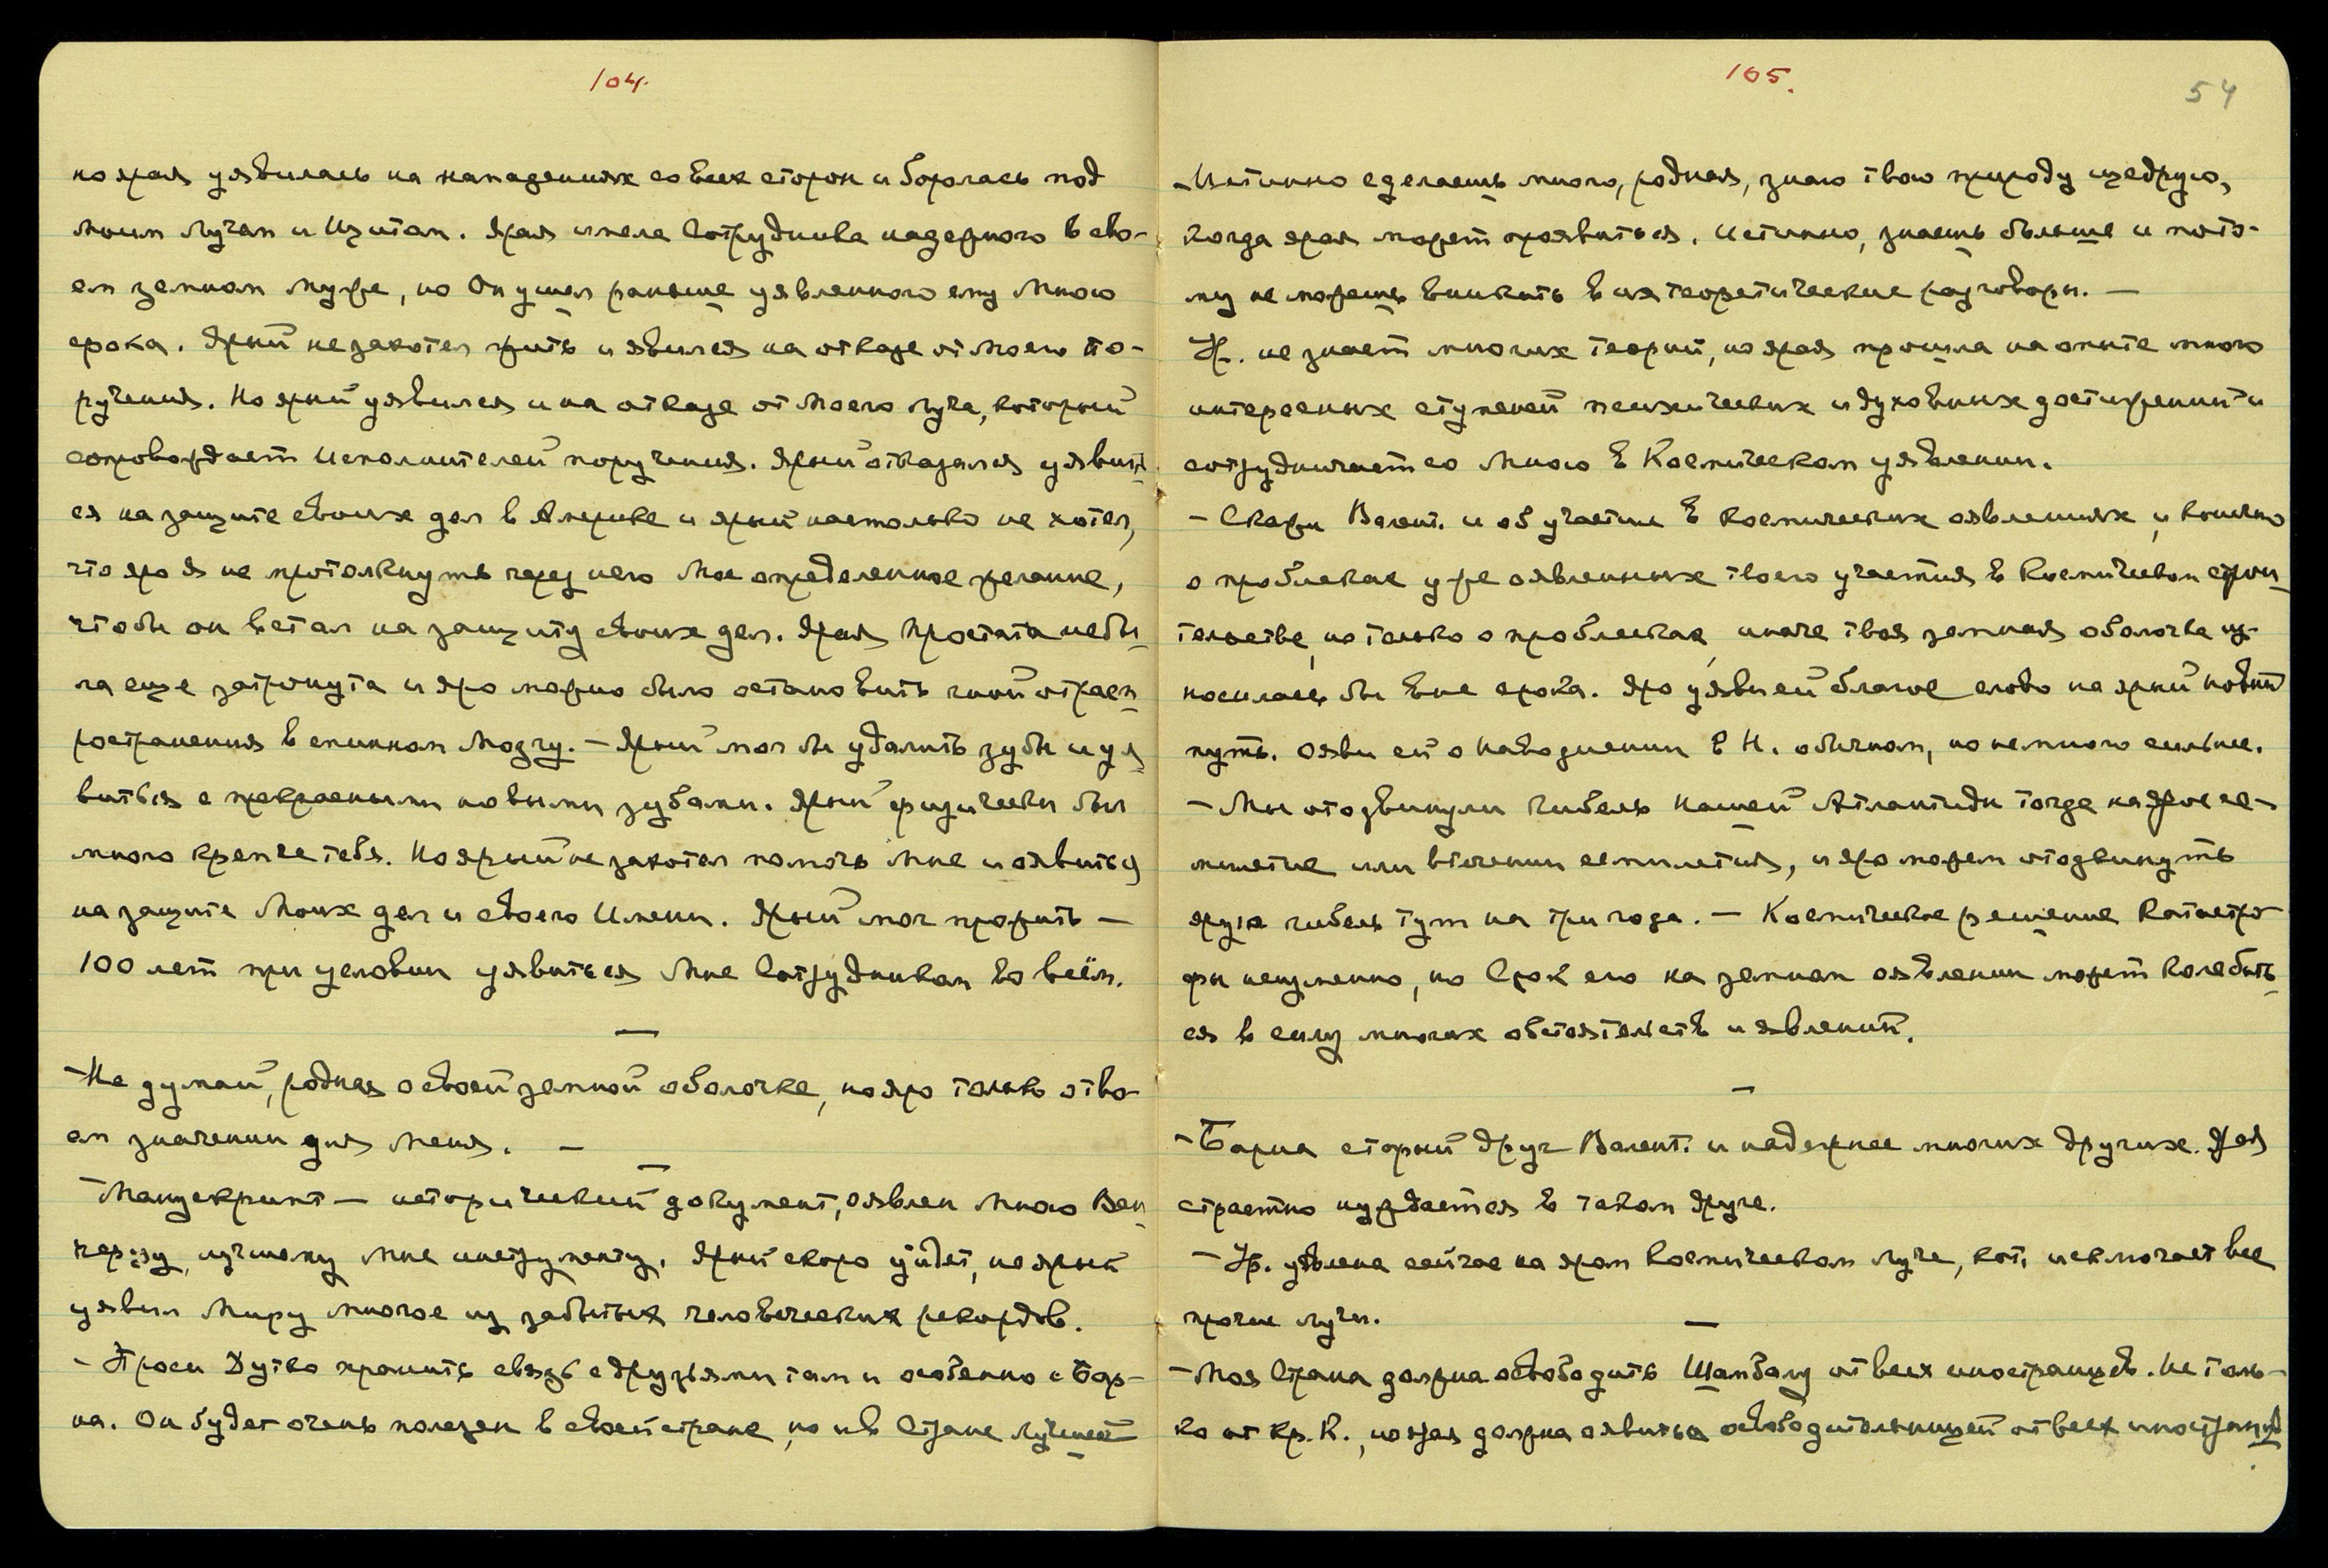 104.
но ярая уявилась на нападениях со всех сторон и боролась под
моим Лучам и Щитам. Ярая имела Сотрудника надежного в сво-
ем земном муже, но Он ушел раньше уявленного ему Мною
срока. Ярый не захотел жить и явился на отказе от Моего По-
ручения. Но ярый уявился и на отказе от Моего Луча, который
сопровождает Исполнителей поручения. Ярый отказался уявить
ся на защите своих дел в Америке и ярый настолько не хотел,
что яро Я не протолкнуть через него Мое определенное желание,
чтобы он встал на защиту своих дел. Ярая Простата не бы-
ла еще затронута и яро можно было остановить гной
распространения в спинном Мозгу. – Ярый мог бы удалить зубы и уя
виться с прекрасными новыми зубами. Ярый физически был
много крепче тебя. Но ярый не захотел помочь Мне и оявиться
на защите Моих дел и своего Имени. Ярый мог прожить –
100 лет при условии уявиться Мне Сотрудником во всём.
—
– Не думай, родная о своей земной оболочке, но яро только о тво-
ем значении для Меня. –
—
– Манускрипт – исторический документ, оявлен Мною Вен
лучшему Мне инструменту. Ярый скоро уйдет, но ярый
уявил Миру многое из забытых человеческих рекордов.
– Проси Дутко хранить связь с друзьями там и особенно с Бар-
на. Он будет очень полезен в своей стране, но и в Стране Лучшей
105.
54
– Истинно сделаешь много, родная, знаю твою природу щедрую,
когда ярая может проявиться. Истинно, знаешь больше и пото-
му не можешь вникать в их теоретические разговоры. –
Ур. не знает многих теорий, но ярая прошла на опыте много
интересных ступеней психических и духовных достижений и
сотрудничает со Мною в Космическом уявлении.
– Скажи Валент. и об участии в космических оявлениях, и конечно
о проблесках уже оявленных твоего участия в Космическом строи
тельстве, но только о проблесках, иначе твоя земная оболочка из-
носилась бы вне срока. Яро уяви ей благое слово на ярый новый
путь. Ояви ей о наводнении в И. обычном, но немного сильнее.
– Мы отодвинули гибель нашей Атлантиды тогда на ярое се-
милетие или в течении семилетия, и яро можем отодвинуть
ярую гибель тут на три года. – Космическое решение Катастро-
фы неизменно, но Срок его на земном оявлении может колебать
ся в силу многих обстоятельств и явлений.
—
– Барна старый друг Валент. и надежнее многих других. Ярая
страстно нуждается в таком друге.
– Ур. уявлена сейчас на яром Космическом Луче, кот. исключает все
прочие лучи.
—
– Моя Страна должна освободить Шамбалу от всех иностранцев. Не толь-
ко от Кр. К., но ярая должна оявиться освободительницей от всех иностранцев